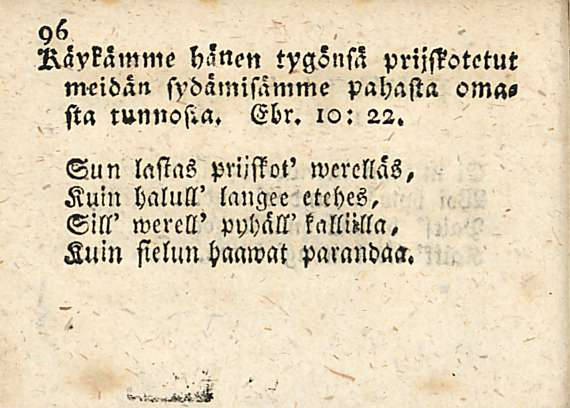 96
Käykämme hänen tygönsä prijskotetut
meidän sydämisämme pahasta omas
sta tunnosta. Ebr. 10: 22.
Sun lastas prijskot' werelläs,
Kuin halull' langee etehes,
Sill' werell' pyhäll' kalliilla,
Kuin sielun haawat parandaa.